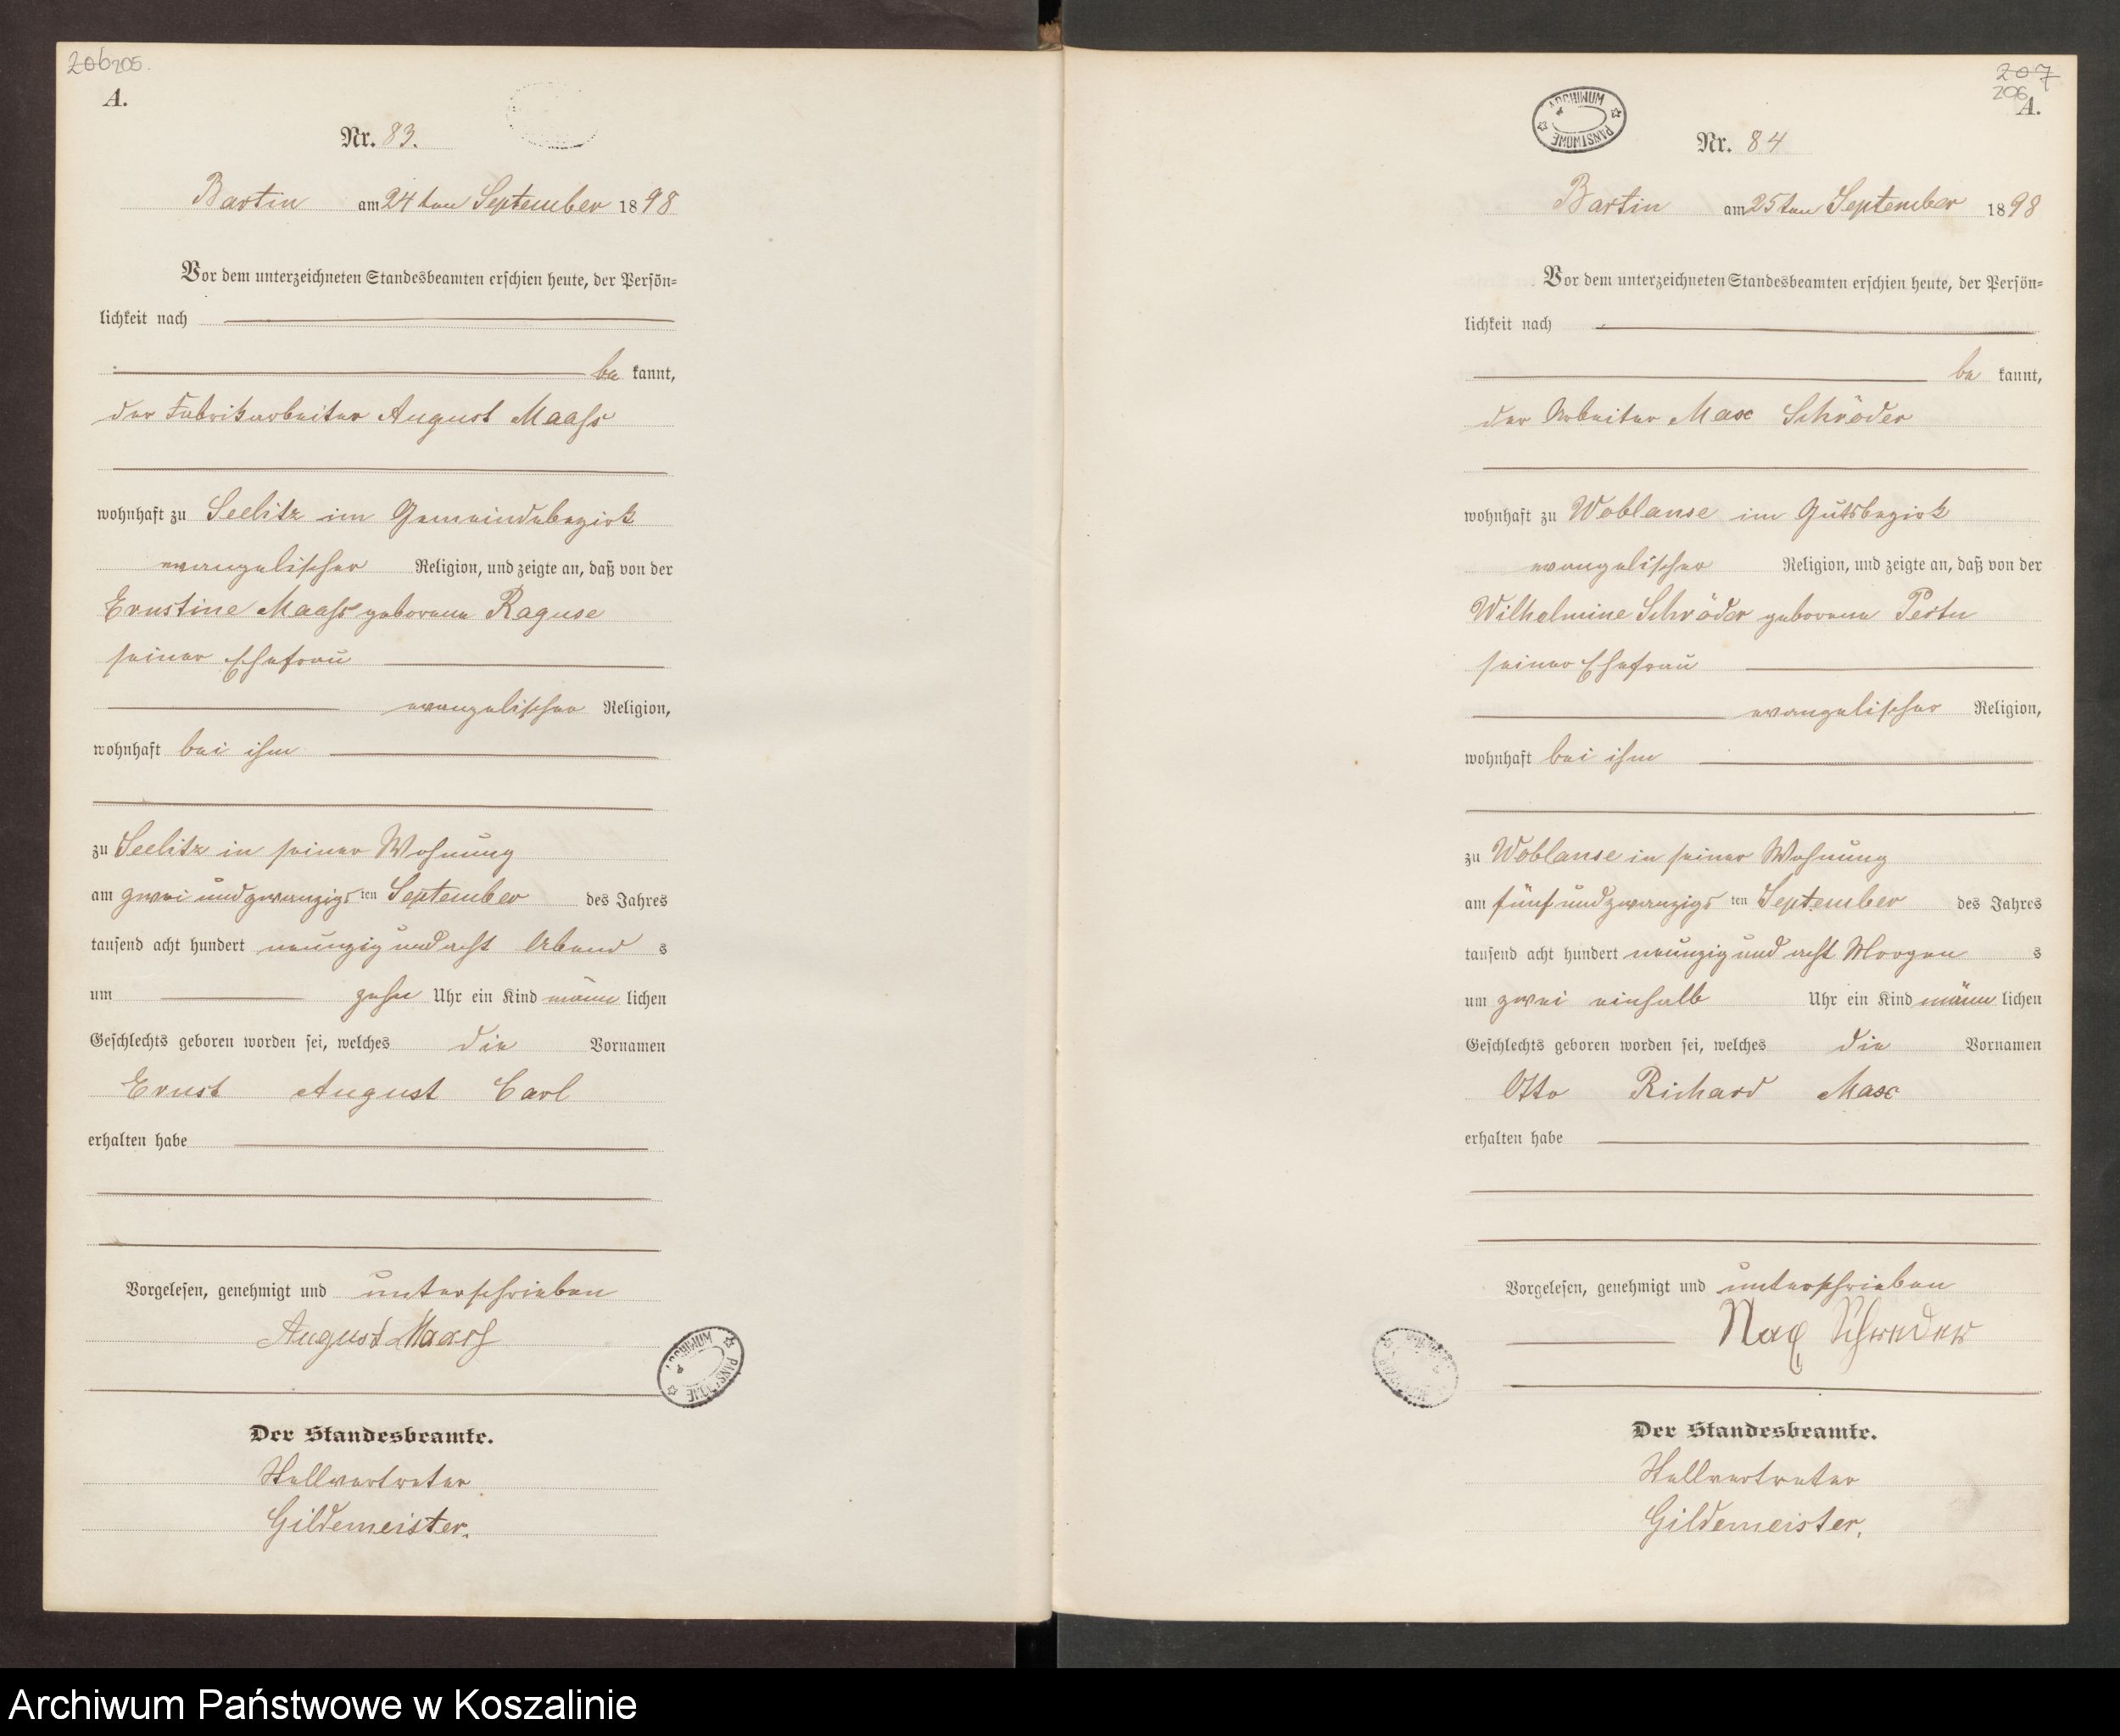 206 205.
A.
Nr. 83.
Bartin am 24ten September 1898
Vor dem unterzeichneten Standesbeamten erschien heute, der Persön=
lichkeit nach
be kannt,
der Fabrikarbeiter August Maaß
wohnhaft zu Seelitz im Gemeindebezirk
evangelischer Religion, und zeigte an, daß von der
Ernstine Maaß geborene Raguse
seiner Ehefrau
evangelischer Religion,
wohnhaft bei ihm
zu Seelitz in seiner Wohnung
am zwei und zwanzigsten September des Jahres
tausend acht hundert neunzig und acht Abends
um zehn Uhr ein Kind männlichen
Geschlechts geboren worden sei, welches die Vornamen
Ernst August Carl
erhalten habe
Vorgelesen, genehmigt und unterschrieben
August Maass
ARCHIWUM PAŃSTWOWE
Der Standesbeamte.
Stellvertreter
Gildemeister.
207
206
A.
ARCHIWUM PAŃSTWOWE
Nr. 84
Bartin am 25ten September 1898
Vor dem unterzeichneten Standesbeamten erschien heute, der Persön=
lichkeit nach
be kannt,
der Arbeiter Max Schröder
wohnhaft zu Woblanse im Gutsbezirk
evangelischer Religion, und zeigte an, daß von der
Wilhelmine Schröder geborene
seiner Ehefrau
evangelischer Religion,
wohnhaft bei ihm
zu Woblanse in seiner Wohnung
am fünf und zwanzigsten September des Jahres
tausend acht hundert neunzig und acht Morgens
um zwei einhalb Uhr ein Kind männlichen
Geschlechts geboren worden sei, welches die Vornamen
Otto Richard Max
erhalten habe
Vorgelesen, genehmigt und unterschrieben
Max Schreder
Der Standesbeamte.
Stellvertreter
Gildemeister.
Archiwum Państwowe w Koszalinie